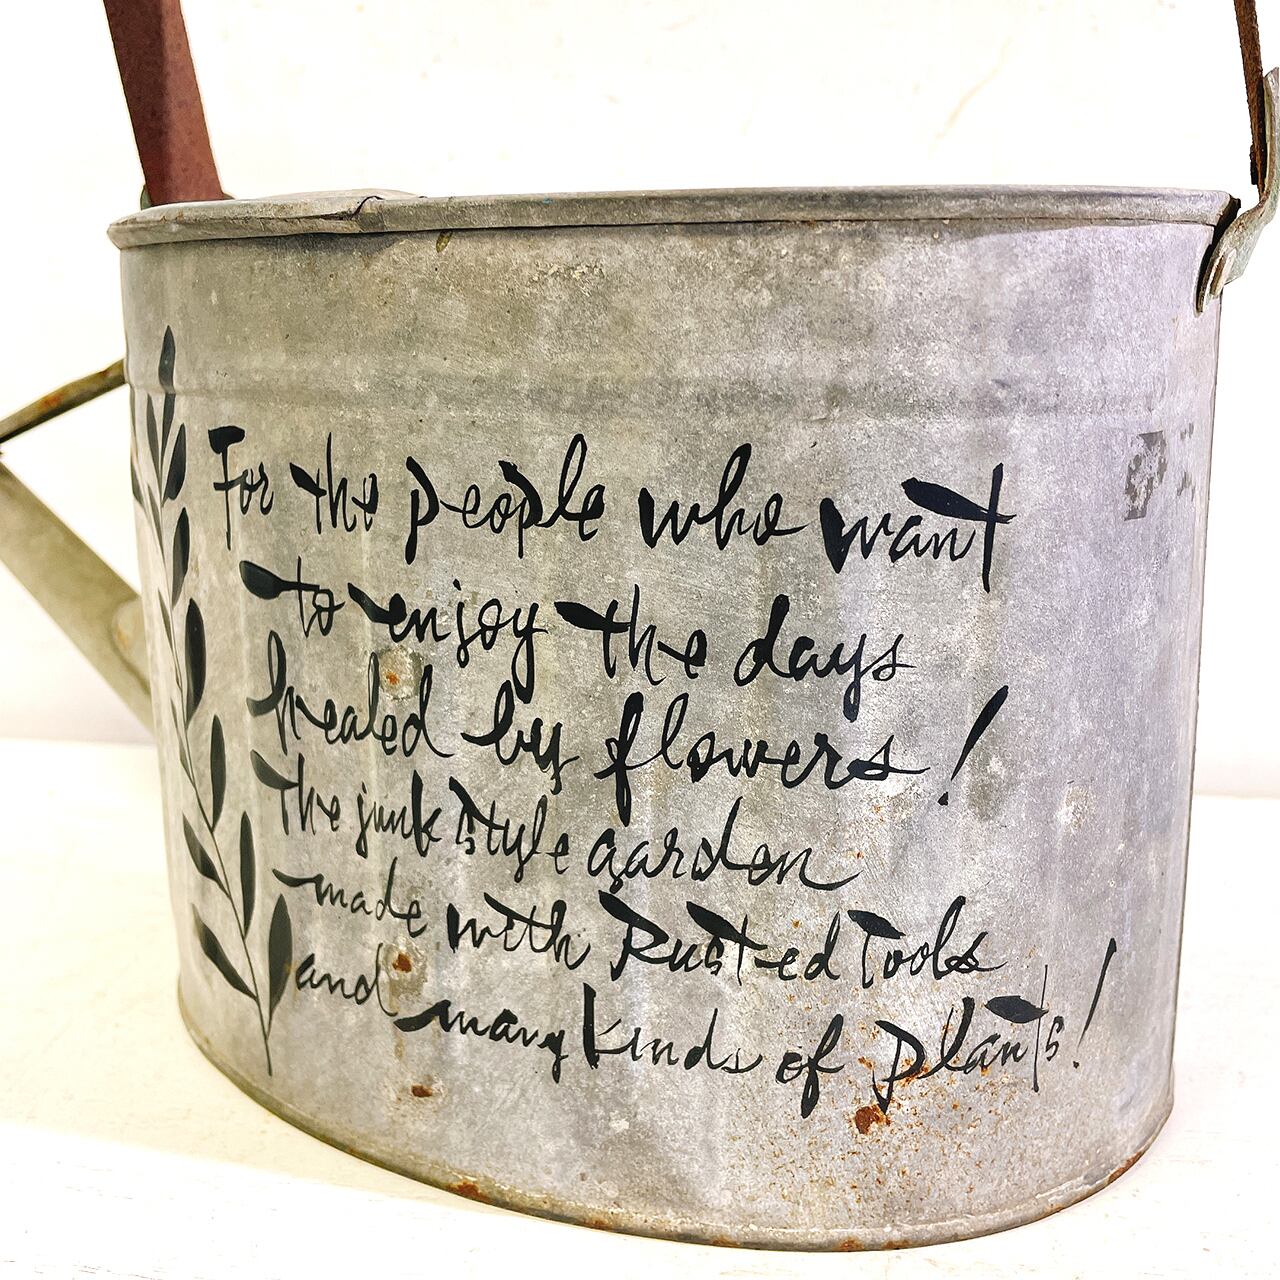 For the people who want
to enjoy the days
healed by flowers!
The junk style garden
made with Rusted Tools
and many kinds of plants!